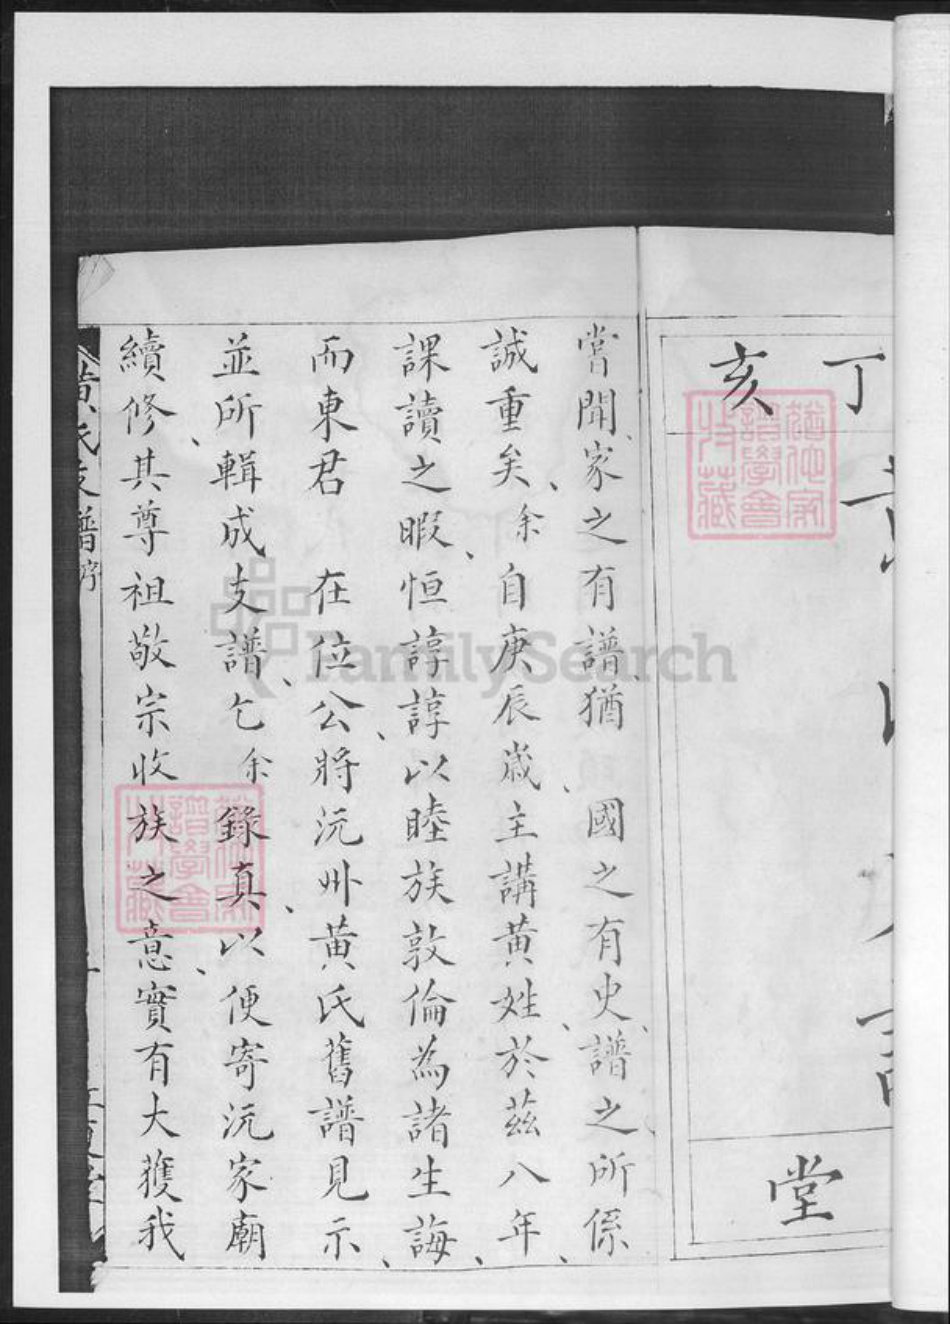 丁
亥
堂
嘗聞家之有譜猶國之有史譜之所係
誠重矣余自庚辰歲主講黃姓於茲八年
課讀之暇恒諄諄以睦族敦倫為諸生誨
而東君在位公將沅州黃氏舊譜見示
並所輯成支譜乞余錄真以便寄沅家廟
續修其尊祖敬宗收族之意實有大獲我
黃氏支譜序
FamilySearch